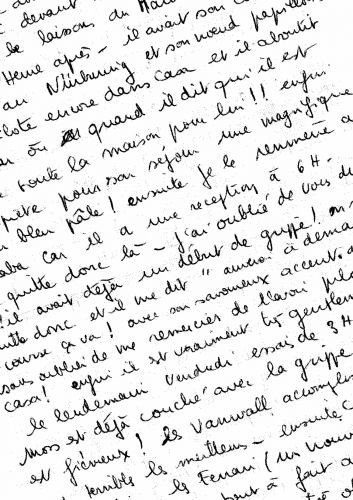 devant
le laisons du Ma
Heme après - il avait son co
au Nürburing et son noeud papillon
flote encore dans casa et il aboutit
où quand il dit qu'il est
toute la maison pour lui!! enfin
pour son séjour une magnifique
bleu pâle! ensuite je le remmène a
car il a une reception à 6 H-
quitte donc là - j'ai oublié de vous di
il avait déjà un début de grippe!
donc et il me dit "aurevoi à dema
course ça va! avec son savoureux accent.
sans oublier de me remercier de l'avoir
casa! enfin il est vraiment très gentlem
le lendemain vendredi essais de 3H
Moss est déjà couché avec la grippe
est fiévreux! les Vanwall accompli
terrible les meetings - ensuite
les Ferrari (un nouv
tout à fait a